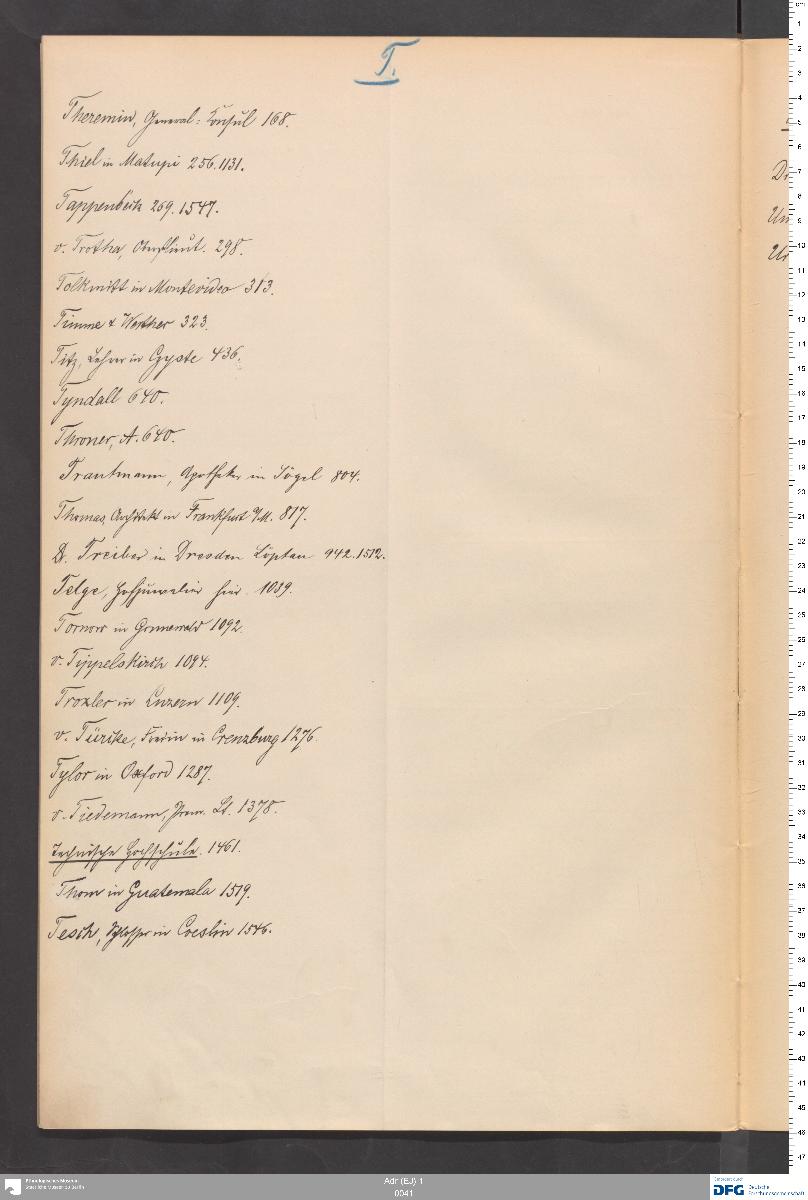 T.
Theremin, General-Konsul 168.
Thiel in Matupi 256. 1131.
Tappenbeck 269. 1547.
v. Trotha, Oberstlieut. 298.
Tolkmitt in Montevideo 313.
Timme & Werther 323.
Titz, Lehrer in Czyste 436.
Tyndall 640.
Throner, A. 640.
Trautmann, Apotheker in Sögel 804.
Thomas, Architekt in Frankfurt a/M. 817.
Dr. Treiber in Dresden Löptau 942. 1512.
Telge, Hofjuwelier hier. 1039.
Tornow in Grunewald 1092.
v. Tippelskirch 1094.
Troxler in Luzern 1109.
v. Türcke, in Creuzburg 1276.
Tylor in Oxford 1287.
v. Tiedemann, Prem. Lt. 1378.
Technische Hochschule. 1461.
Thom in Guatemala 1519.
Tesch, Schlosser in Coeslin 1546.
Ethnologisches Museum
Staatliche Museen zu Berlin
Adr (EJ) 1
0041
DFG Deutsche
Forschungsgemeinschaft